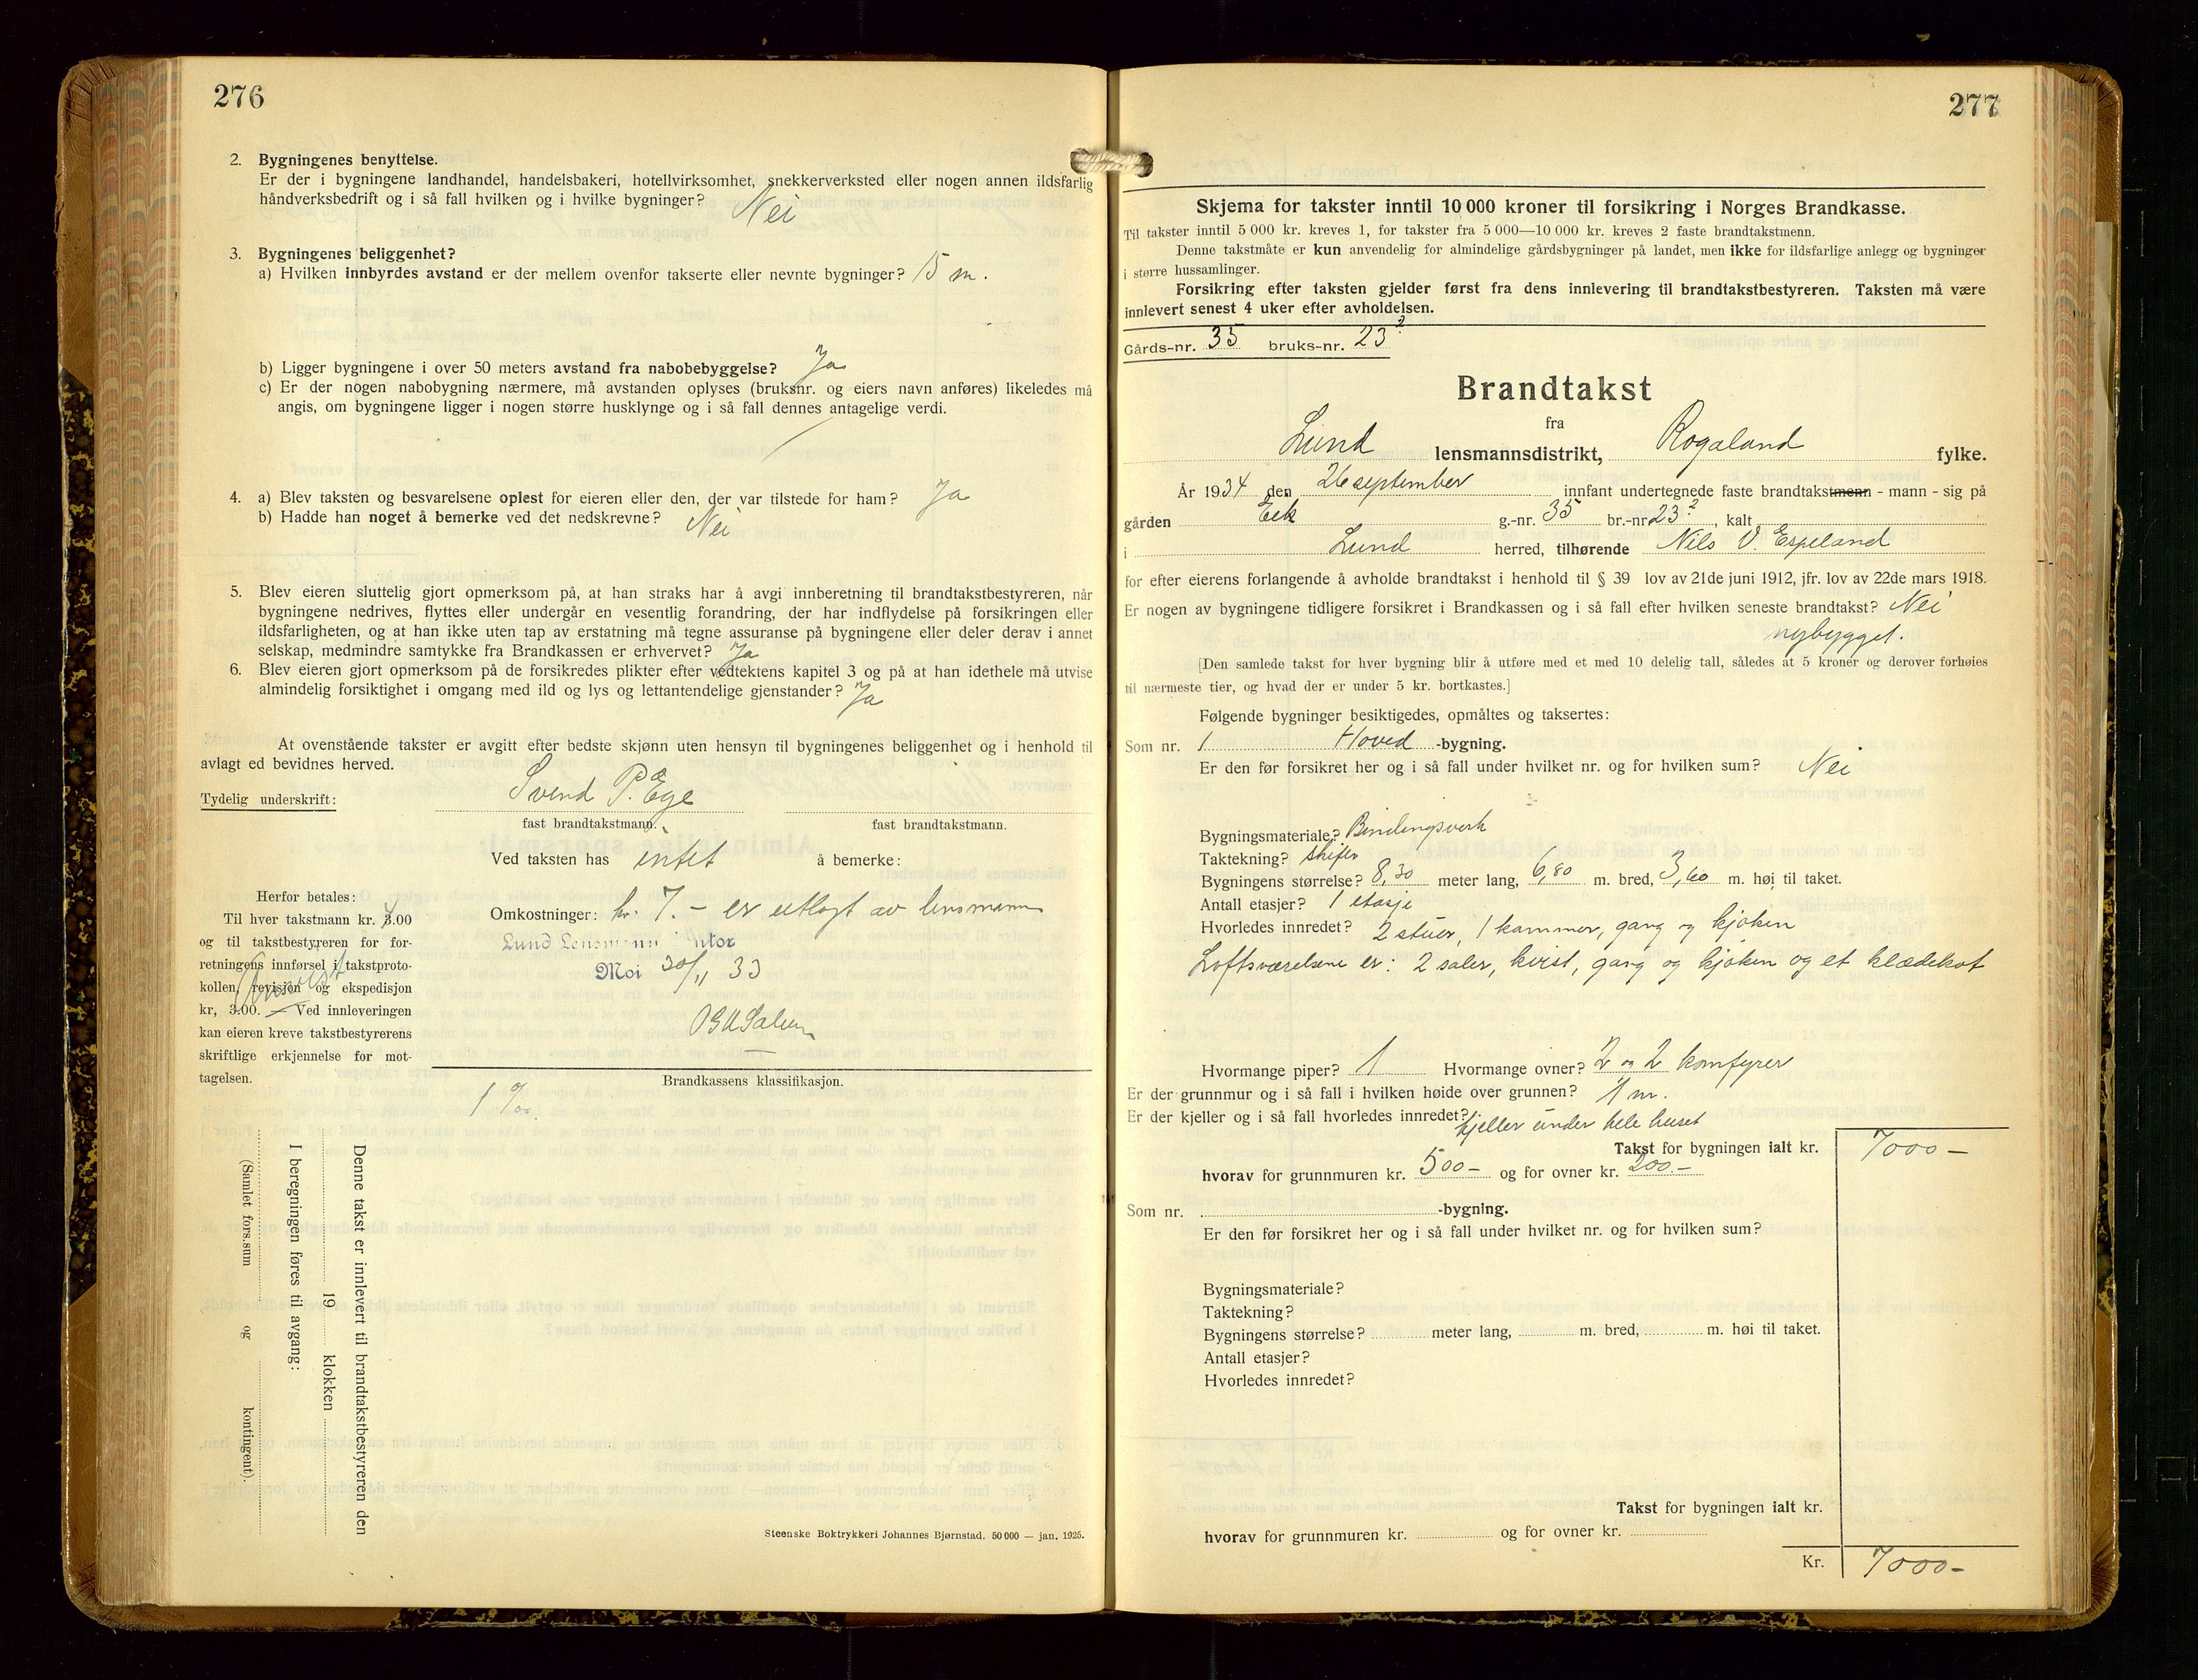 276
2. Bygningenes benyttelse.
Er der i bygningene landhandel, handelsbakeri, hotellvirksomhet, snekkerverksted eller nogen annen ildsfarlig
håndverksbedrift og i så fall hvilken og i hvilke bygninger? Nei
3. Bygningenes beliggenhet?
a) Hvilken innbyrdes avstand er der mellem ovenfor takserte eller nevnte bygninger? 15 m.
b) Ligger bygningene i over 50 meters avstand fra nabobebyggelse? Ja
c) Er der nogen nabobygning nærmere, må avstanden oplyses (bruksnr. og eiers navn anføres) likeledes må
angis, om bygningene ligger i nogen større husklynge og i så fall dennes antagelige verdi.
4. a) Blev taksten og besvarelsene oplest for eieren eller den, der var tilstede for ham? Ja
b) Hadde han noget å bemerke ved det nedskrevne? Nei
5. Blev eieren sluttelig gjort opmerksom på, at han straks har å avgi innberetning til brandtakstbestyreren, når
bygningene nedrives, flyttes eller undergår en vesentlig forandring, der har indflydelse på forsikringen eller
ildsfarligheten, og at han ikke uten tap av erstatning må tegne assuranse på bygningene eller deler derav i annet
selskap, medmindre samtykke fra Brandkassen er erhvervet? Ja
6. Blev eieren gjort opmerksom på de forsikredes plikter efter vedtektens kapitel 3 og på at han idethele må utvise
almindelig forsiktighet i omgang med ild og lys og lettantendelige gjenstander? Ja
At ovenstående takster er avgitt efter bedste skjønn uten hensyn til bygningenes beliggenhet og i henhold til
avlagt ed bevidnes herved.
Tydelig underskrift: Svend P. Ege
fast brandtakstmann. fast brandtakstmann.
Ved taksten has intet å bemerke:
Herfor betales:
Til hver takstmann kr. 3.00
og til takstbestyreren for for-
retningens innførsel i takstproto-
kollen, revisjon og ekspedisjon
kr, 3.00. Ved innleveringen
kan eieren kreve takstbestyrerens
skriftlige erkjennelse for mot-
tagelsen.
Omkostninger: kr. 7.- er utlagt av lensmann
Lund Lensmannskontor
Moi 30/11 33
Brandkassens klassifikasjon.
1 ‰
Denne takst er innlevert til brandtakstbestyreren den
19 klokken
I beregningen føres til avgang:
(Samlet fors.sum og kontingent).
Steenske Boktrykkeri Johannes Bjørnstad. 50 000 — jan. 1925.
277
Skjema for takster inntil 10 000 kroner til forsikring i Norges Brandkasse.
Til takster inntil 5 000 kr. kreves 1, for takster fra 5 000—10 000 kr. kreves 2 faste brandtakstmenn.
Denne takstmåte er kun anvendelig for almindelige gårdsbygninger på landet, men ikke for ildsfarlige anlegg og bygninger
i større hussamlinger.
Forsikring efter taksten gjelder først fra dens innlevering til brandtakstbestyreren. Taksten må være
innlevert senest 4 uker efter avholdelsen.
Gårds-nr. 35 bruks-nr. 23²
Brandtakst
fra
Lund lensmannsdistrikt, Rogaland fylke.
År 1934 den 26 september innfant undertegnede faste brandtakstmenn - mann - sig på
gården Eik g.-nr. 35 br.-nr 23², kalt
i Lund herred, tilhørende Nils V. Espeland
for efter eierens forlangende å avholde brandtakst i henhold til § 39 lov av 21de juni 1912, jfr. lov av 22de mars 1918.
Er nogen av bygningene tidligere forsikret i Brandkassen og i så fall efter hvilken seneste brandtakst? Nei
nybygget.
[Den samlede takst for hver bygning blir å utføre med et med 10 delelig tall, således at 5 kroner og derover forhøies
til nærmeste tier, og hvad der er under 5 kr. bortkastes.]
Følgende bygninger besiktigedes, opmåltes og taksertes:
Som nr. 1 Hoved -bygning.
Er den før forsikret her og i så fall under hvilket nr. og for hvilken sum? Nei
Bygningsmateriale? Bindingsverk
Taktekning? skifer
Bygningens størrelse? 8,30 meter lang, 6,80 m. bred, 3,60 m. høi til taket.
Antall etasjer? 1 etasje
Hvorledes innredet? 2 stuer, 1 kammer, gang og kjøken
Loftsværelsene er: 2 saler, kvist, gang og kjøken og et klædekot
Hvormange piper? 1 Hvormange ovner? 2 og 2 komfyrer
Er der grunnmur og i så fall i hvilken høide over grunnen? 1 m.
Er der kjeller og i så fall hvorledes innredet? kjeller under hele huset
Takst for bygningen ialt kr. 7000-
hvorav for grunnmuren kr. 500- og for ovner kr. 200-
Som nr. -bygning.
Er den før forsikret her og i så fall under hvilket nr. og for hvilken sum?
Bygningsmateriale?
Taktekning?
Bygningens størrelse? meter lang, m. bred, m. høi til taket.
Antall etasjer?
Hvorledes innredet?
Takst for bygningen ialt kr.
hvorav for grunnmuren kr. og for ovner kr.
Kr. 7000-